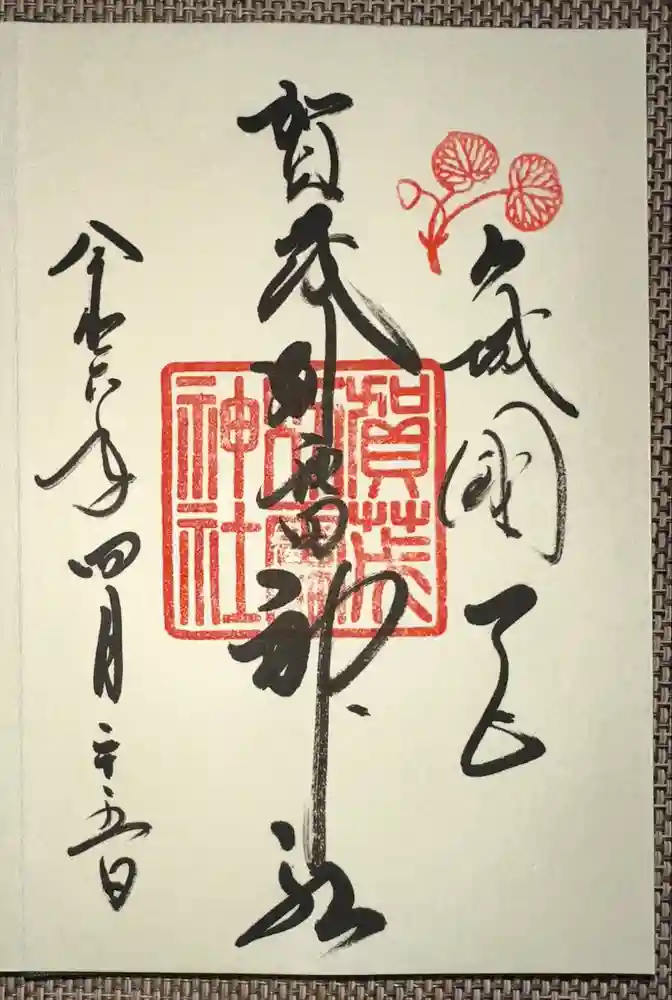 山城國一宮
賀茂別雷神社
令和六年四月二十五日
賀茂
別雷
神社